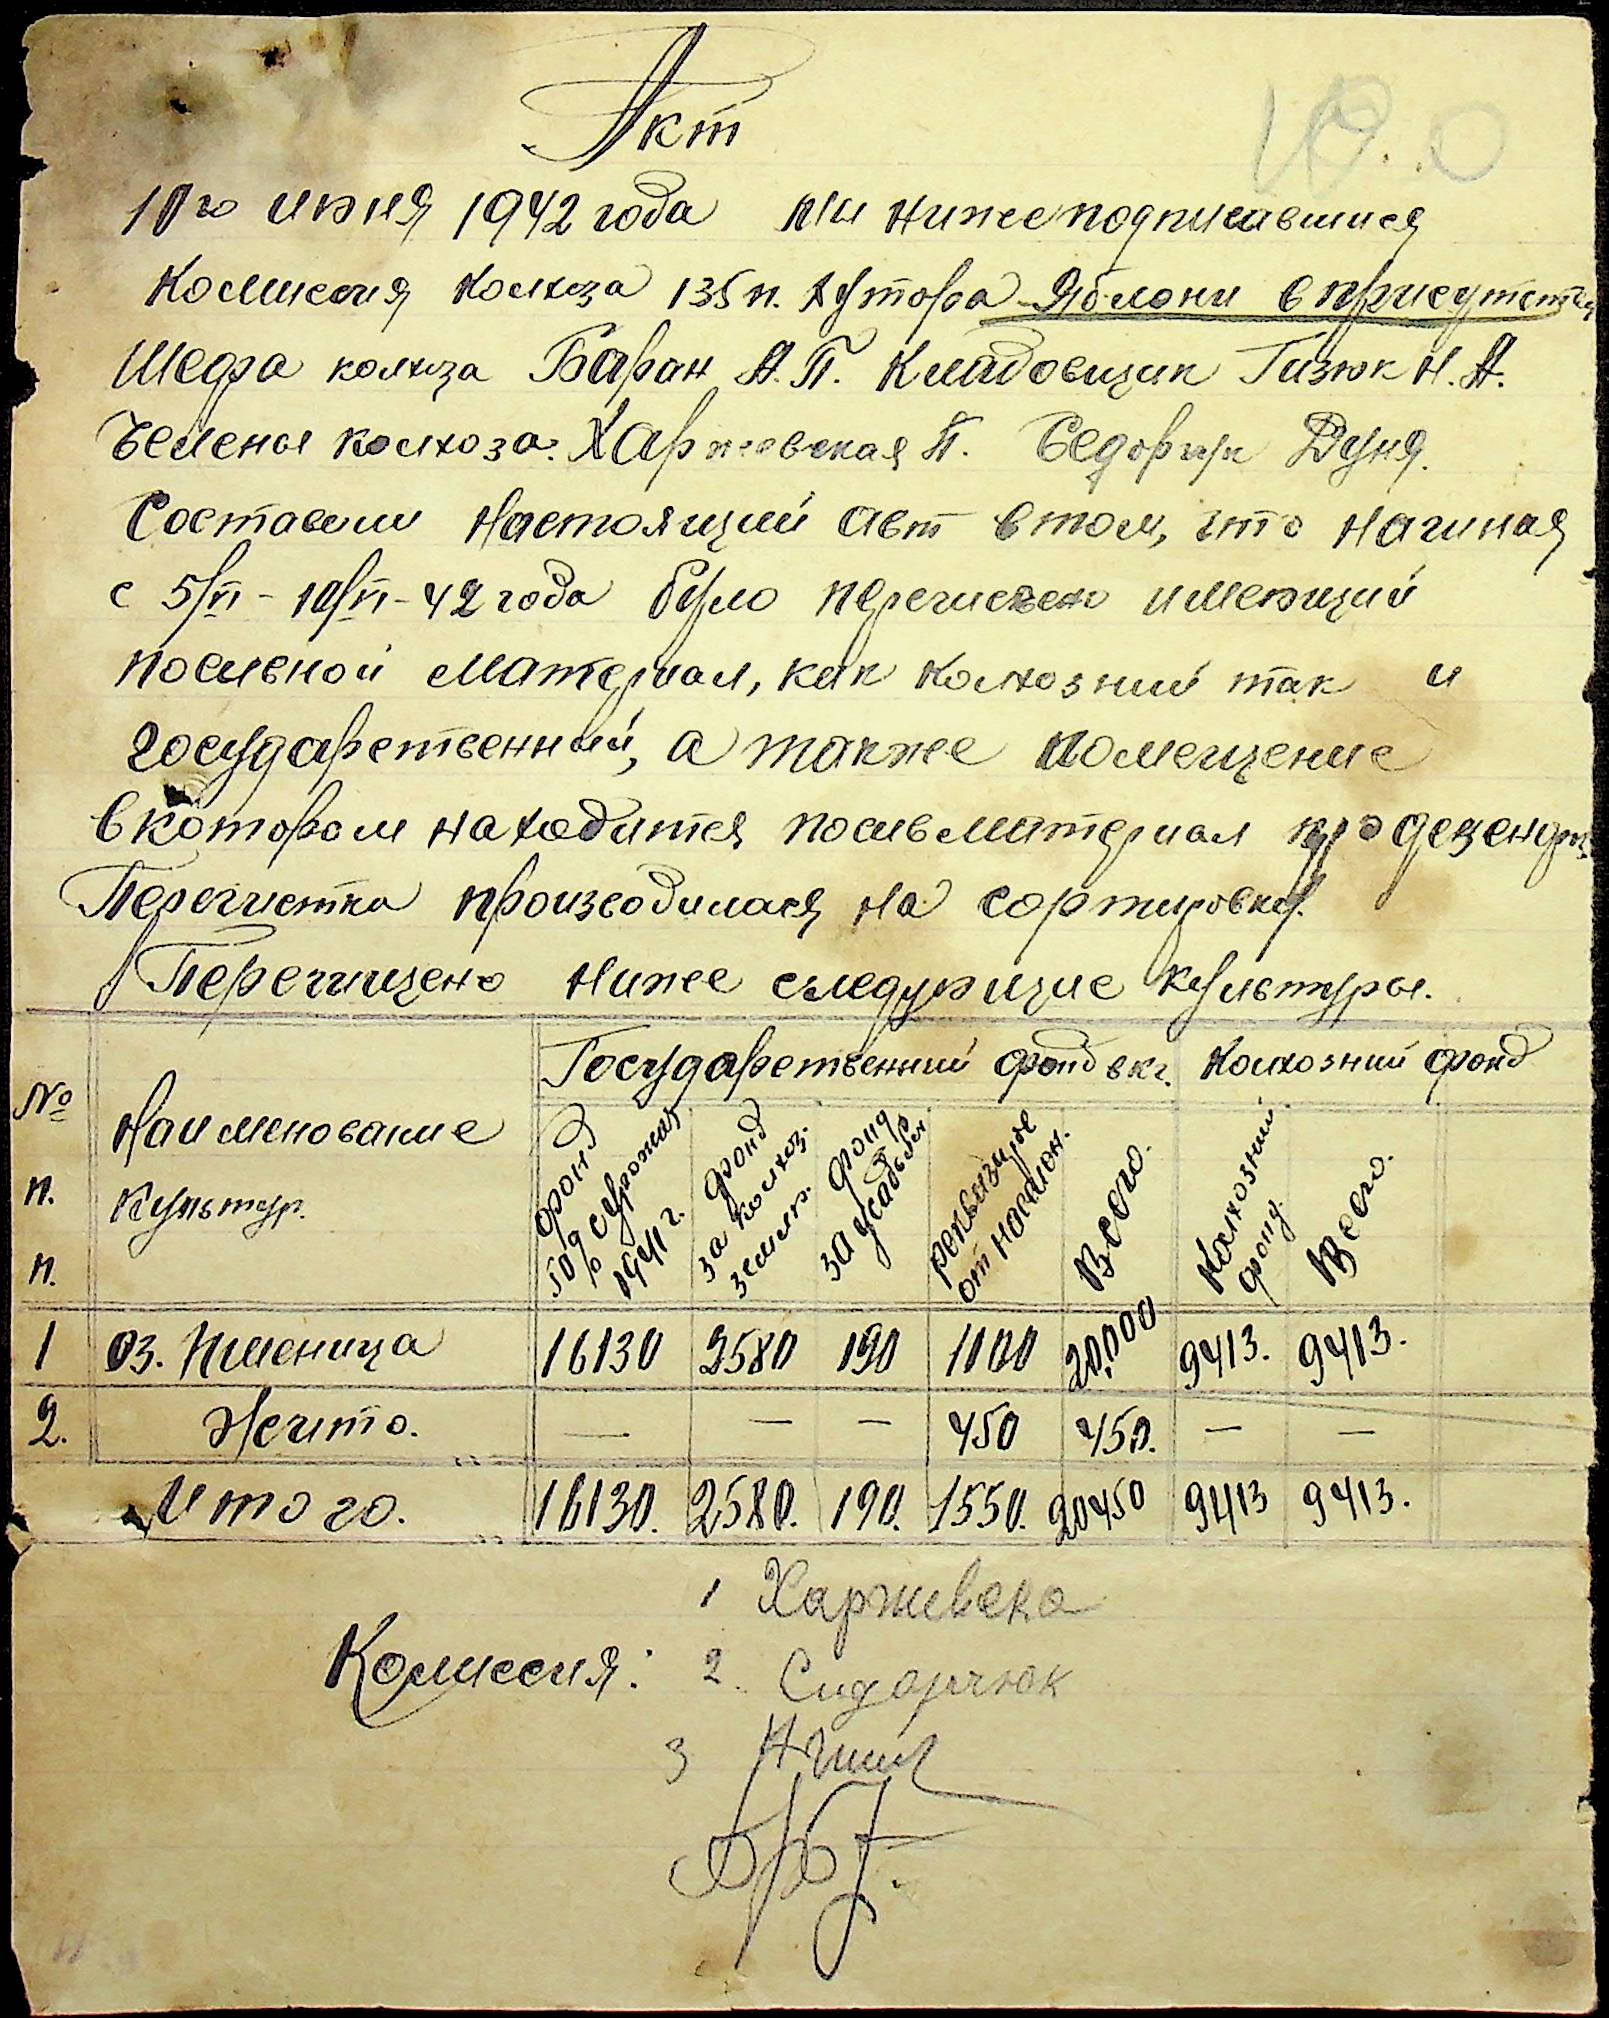 Акт
10го июня 1942 года мы нижеподписавшися
Комиссия колхоза 135 п. хутора Яблони в присутстви
Шефа колхоза Баран А.П. Кладовщик Гизюк Н.А.
Члены колхоза: Харжевская П. Седорчук Дуня.
Составили настоящий акт в том, что начиная
с 5/VI - 10/VI - 42 года було перечислено имеющий
посевной материал, как колхозний так и
государственний, а также помещение
в котором находится посевматериал продезенф.
Перечистка производилася на сортировки.
Перечищено ниже следующие культуры.
№ п. п. Наименование культур. Государственний фонд в кг. Колхозний фонд
фонд 50% с урожая 1941 г. фонд за колхоз. землю. фонд за усадьбы реквизиция от насилен. Всего. Колхозний фонд. Всего.
1 оз. Пшеница 16130 2580 190 1100 20.000 9413. 9413.
2. Жито. — — — 450 450. — —
Итого. 16130. 2580. 190. 1550. 20450 9413 9413.
Комиссия: 1 Харжевска
2. Сидорчюк
3